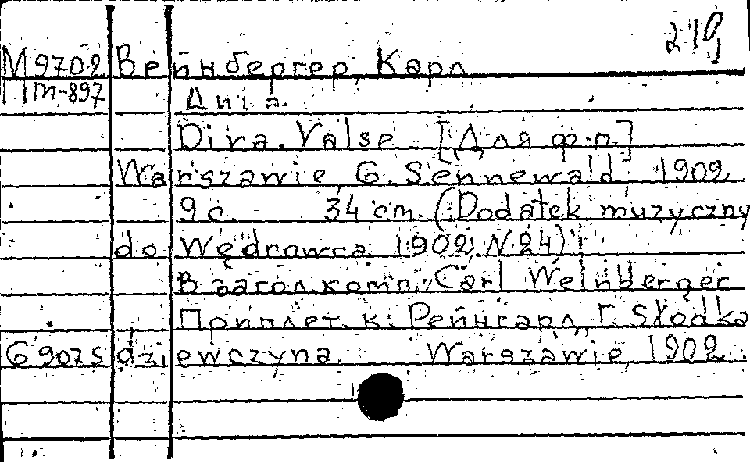 219
М 9702 Вейнбергер, Карл
Π m-897 Дива.
Diva. Valse [Для ф-п.]
Warszawie, G. Sennewald 1902
9 с. 34 cm (Dodatek muzyczny
do Wędrowca 1902, N 24)
В загол. комп.: Carl Weinberger
Приплет. к: Рейнгард, Г. Słodka
G 902s dziewczyna. Warszawie, 1902.